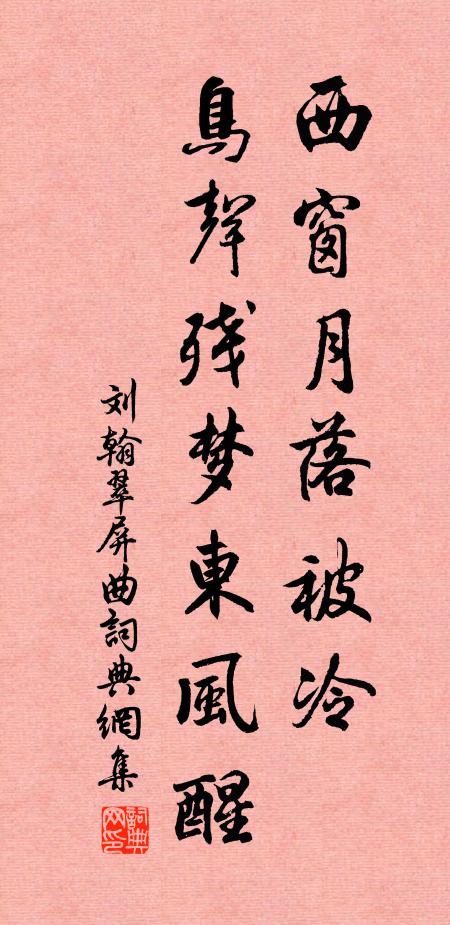 西窗月落被冷
鳥聲残梦東風醒
刘翰翠屏曲詞典網集
詞典网印